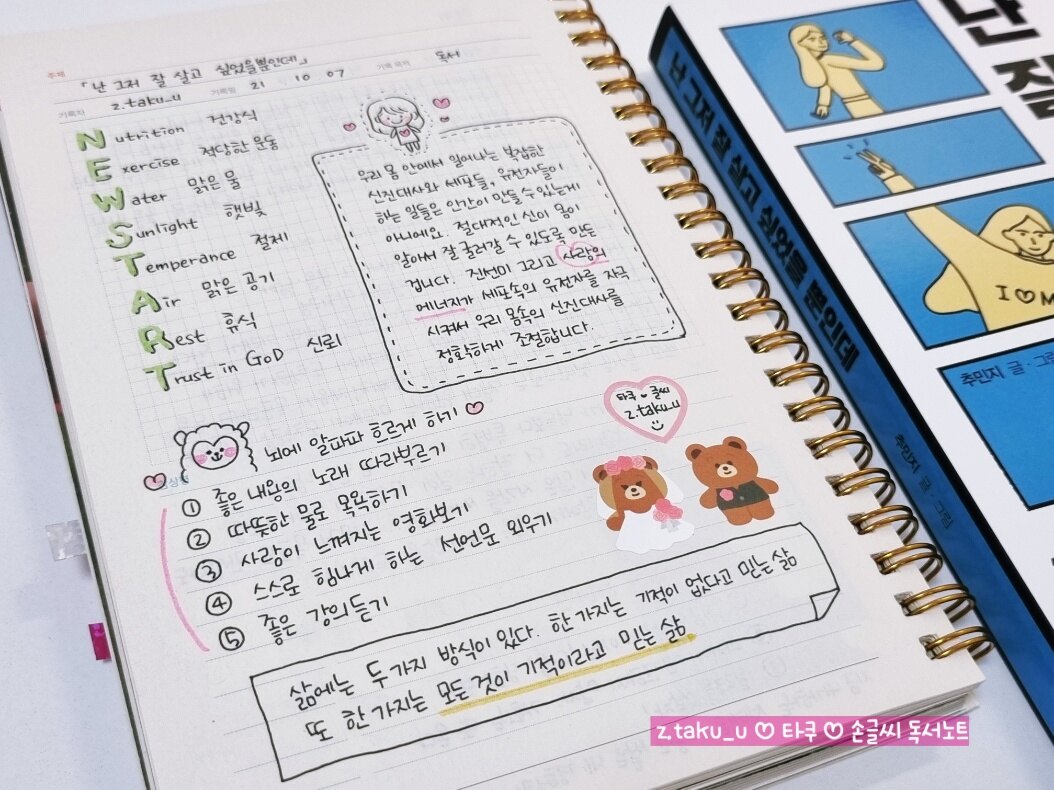 주제 「난 그저 잘 살고 싶었을뿐인데」
기록자 z.taku_u 기록일 21 10 07 기록 목적 독서
Nutrition 건강식
Exercise 적당한 운동
Water 맑은 물
Sunlight 햇빛
Temperance 절제
Air 맑은 공기
Rest 휴식
Trust in GoD 신뢰
우리 몸 안에서 일어나는 복잡한
신진대사와 세포들, 유전자들이
하는 일들은 인간이 만들 수 있는게
아니에요. 절대적인 신이 몸이
알아서 잘 굴러갈 수 있도록 만든
겁니다. 진선미 그리고 사랑의
에너지가 세포속의 유전자를 자극
시켜서 우리 몸속의 신진대사를
정확하게 조절합니다.
뇌에 알파파 흐르게 하기 ♡
① 좋은 내용의 노래 따라부르기
② 따뜻한 물로 목욕하기
③ 사랑이 느껴지는 영화보기
④ 스스로 힘나게 하는 선언문 외우기
⑤ 좋은 강의듣기
타쿠 글씨
z.taku_u
삶에는 두가지 방식이 있다. 한가지는 기적이 없다고 믿는삶
또 한가지는 모든것이 기적이라고 믿는삶
난 그저 잘 살고 싶었을 뿐인데
추민지 글 · 그림
난
잘
I ♡ M
추민지 글 · 그림
z.taku_u ♡ 타쿠 ♡ 손글씨 독서노트